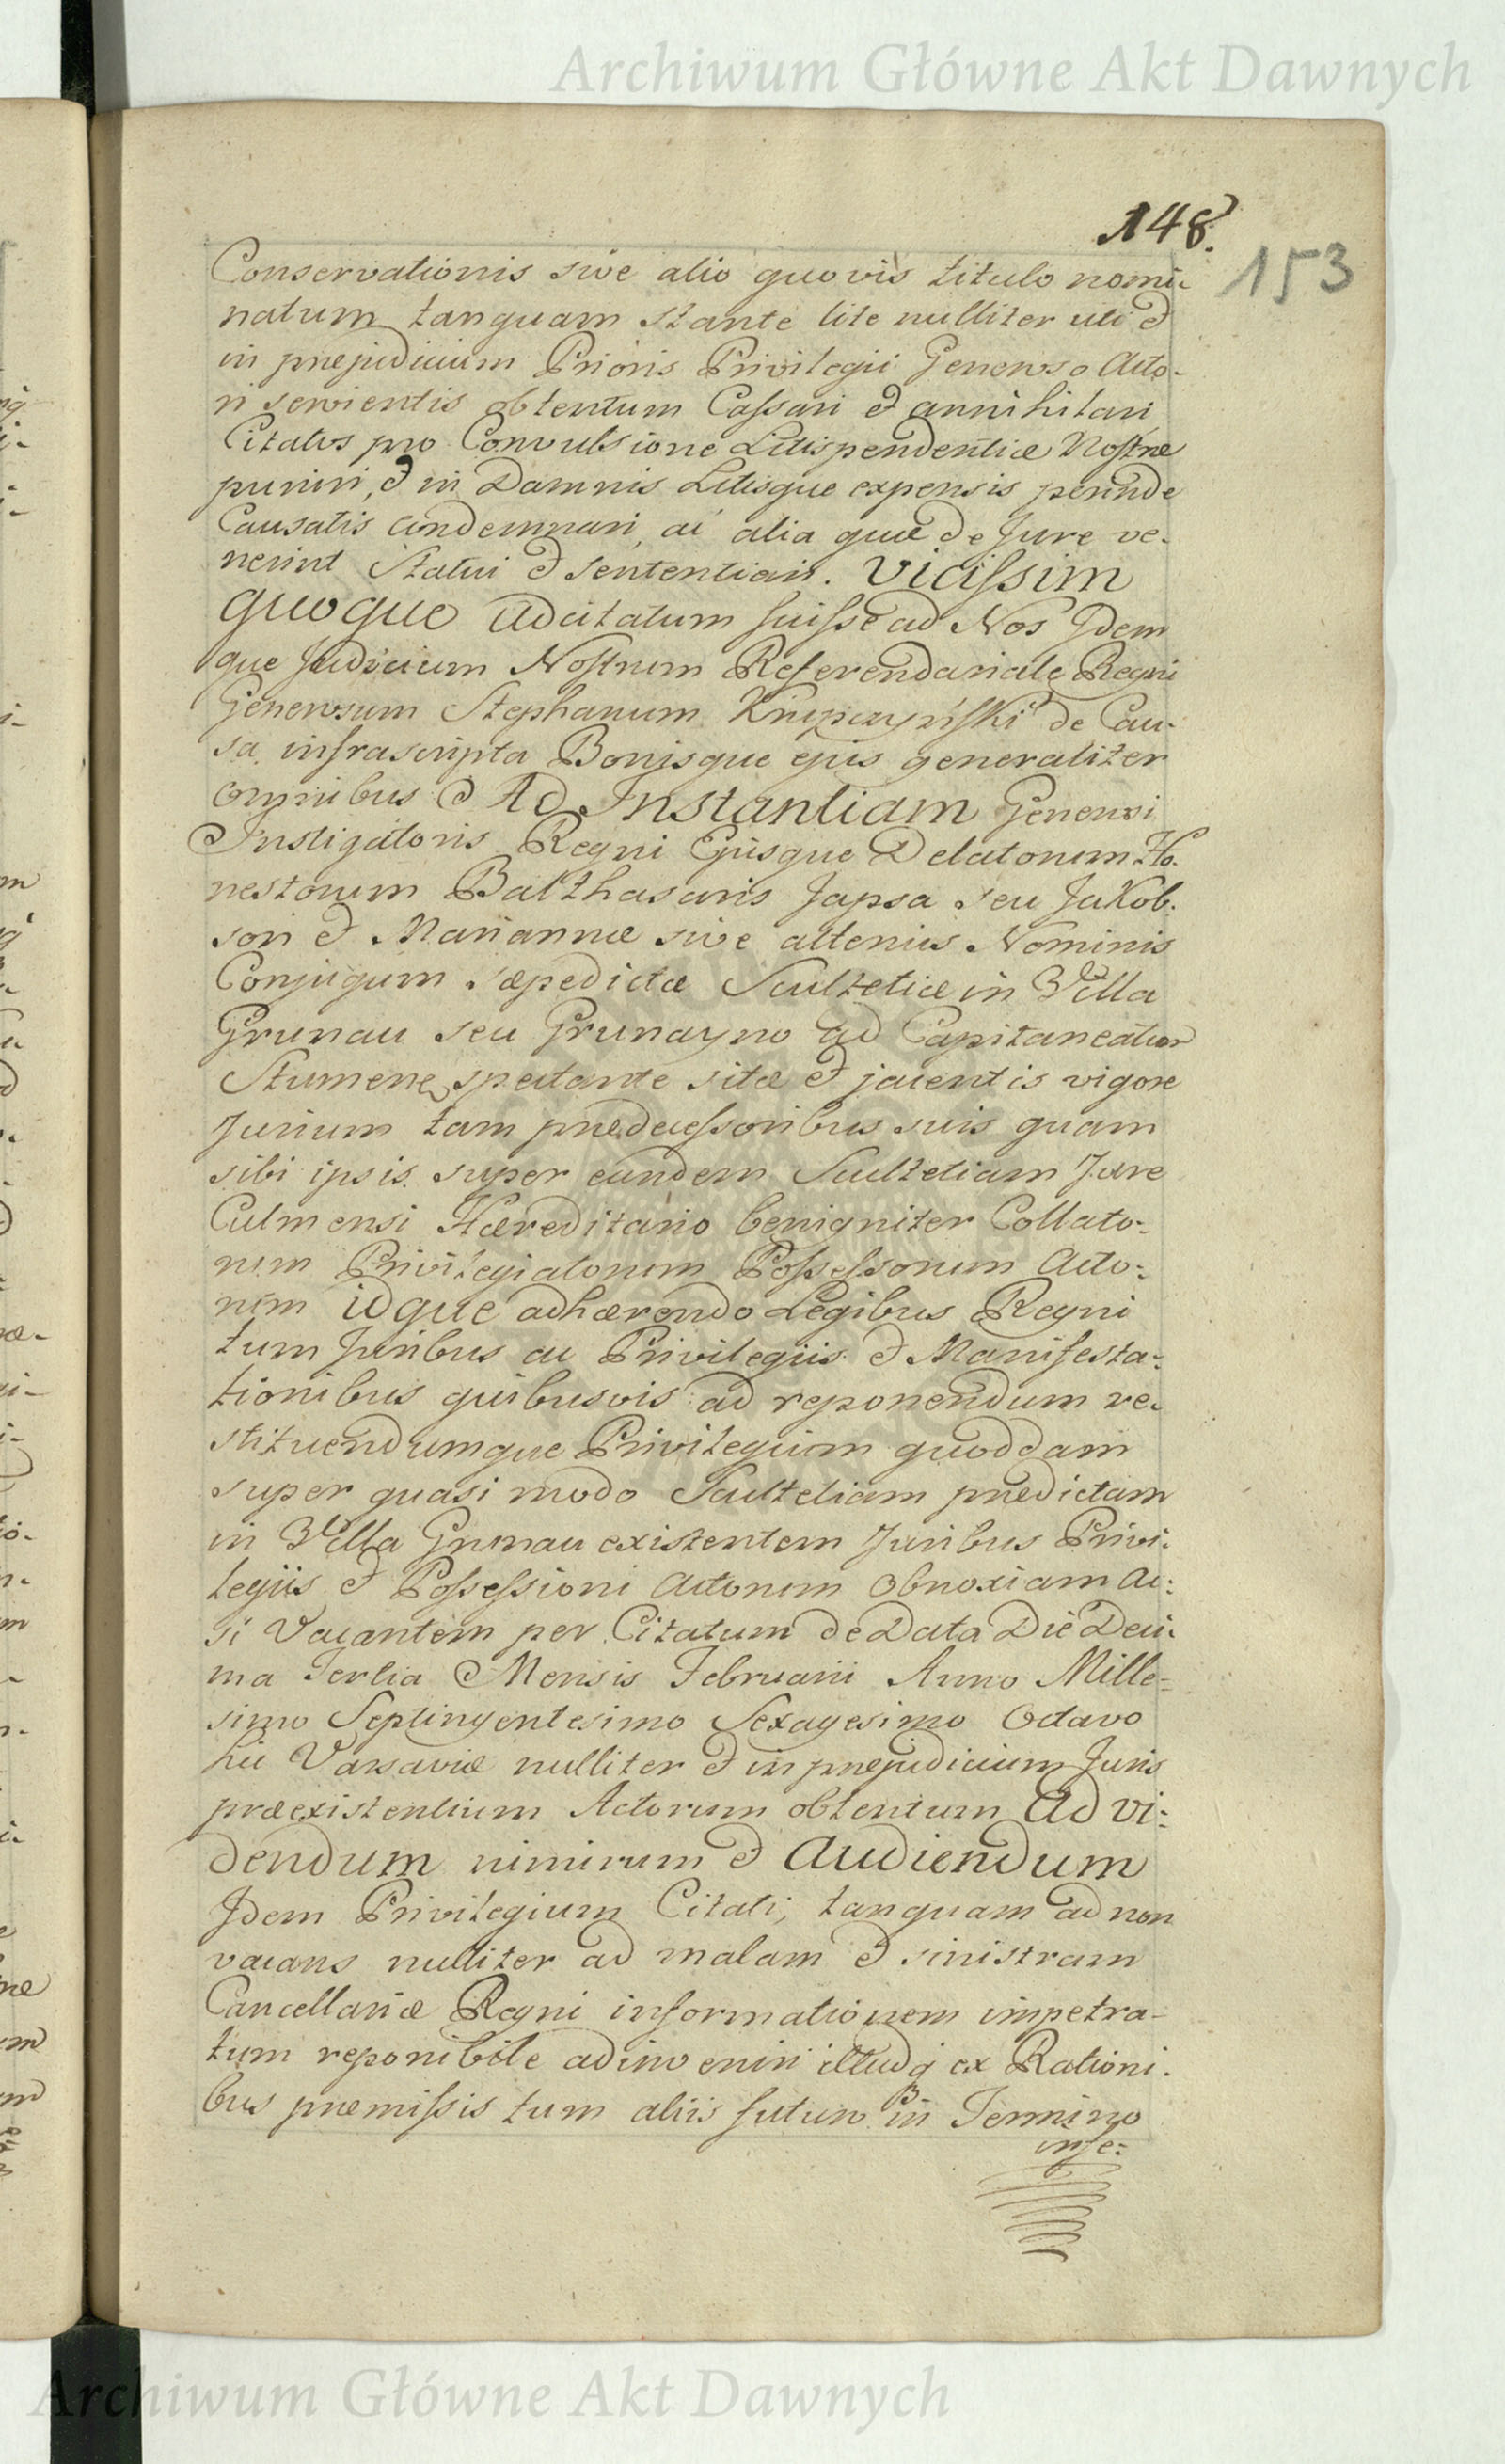 Archiwum Główne Akt Dawnych
148.
153
Conservationis sive alio quovis titulo nomi-
natum tanquam stante lite nulliter uti et
in præjudicium Prioris Privilegii Generoso Acto-
ri servientis obtentum Cassari et annihilari
Citatos pro Convulsione Litispendentiæ Nostræ
puniri, et in Damnis Litisque expensis perinde
Causatis condemnari, ac alia quæ de Jure ve-
nerint Statui et Sententiari. Vicissim
quoque adcitatum fuisse ad Nos Idem
que Judicium Nostrum Referendariale Regni
Generosum Stephanum Krupczyński de Cau-
sa infrascripta Bonisque ejus generaliter
omnibus Ad Instantiam Generosi
Instigatoris Regni Ejusque Delatorum Ho-
nestorum Balthasaris Japsa seu Jakob-
son et Mariannæ sive alterius Nominis
Conjugum sæpedictæ Scultetiæ in Villa
Grunau seu Grunayno ad Capitaneatum
Stumens, spectante sitæ et jacentis vigore
Jurium tam prædecessoribus suis quam
sibi ipsis super eandem Scultetiam Jure
Culmensi Hæreditario benigniter Collato-
rum Privilegiatorum Possessorum Acto-
rum idque adhærendo Legibus Regni
tum Juribus ac Privilegiis et Manifesta-
tionibus quibusvis ad reponendum re-
stituendumque Privilegium quoddam
super quasi modo Scultetiam prædictam
in Villa Grunau existentem Juribus Privi-
legiis et Possessioni Actorum Obnoxiam ac-
si Vacantem per Citatum de Data Die Deci-
ma Tertia Mensis Februarii Anno Mille-
simo Septingentesimo Sexagesimo Octavo
hic Varsaviæ nulliter et in præjudicium Juris
præexistentium Actorum obtentum Ad vi-
dendum nimirum et Audiendum
Idem Privilegium Citati, tanquam ad non
vacans nulliter ad malam et sinistram
Cancellariæ Regni informationem impetra-
tum reponibile adinveniri illudq ex Rationi-
bus præmissis tum aliis futuro in Termino
infe-
Archiwum Główne Akt Dawnych